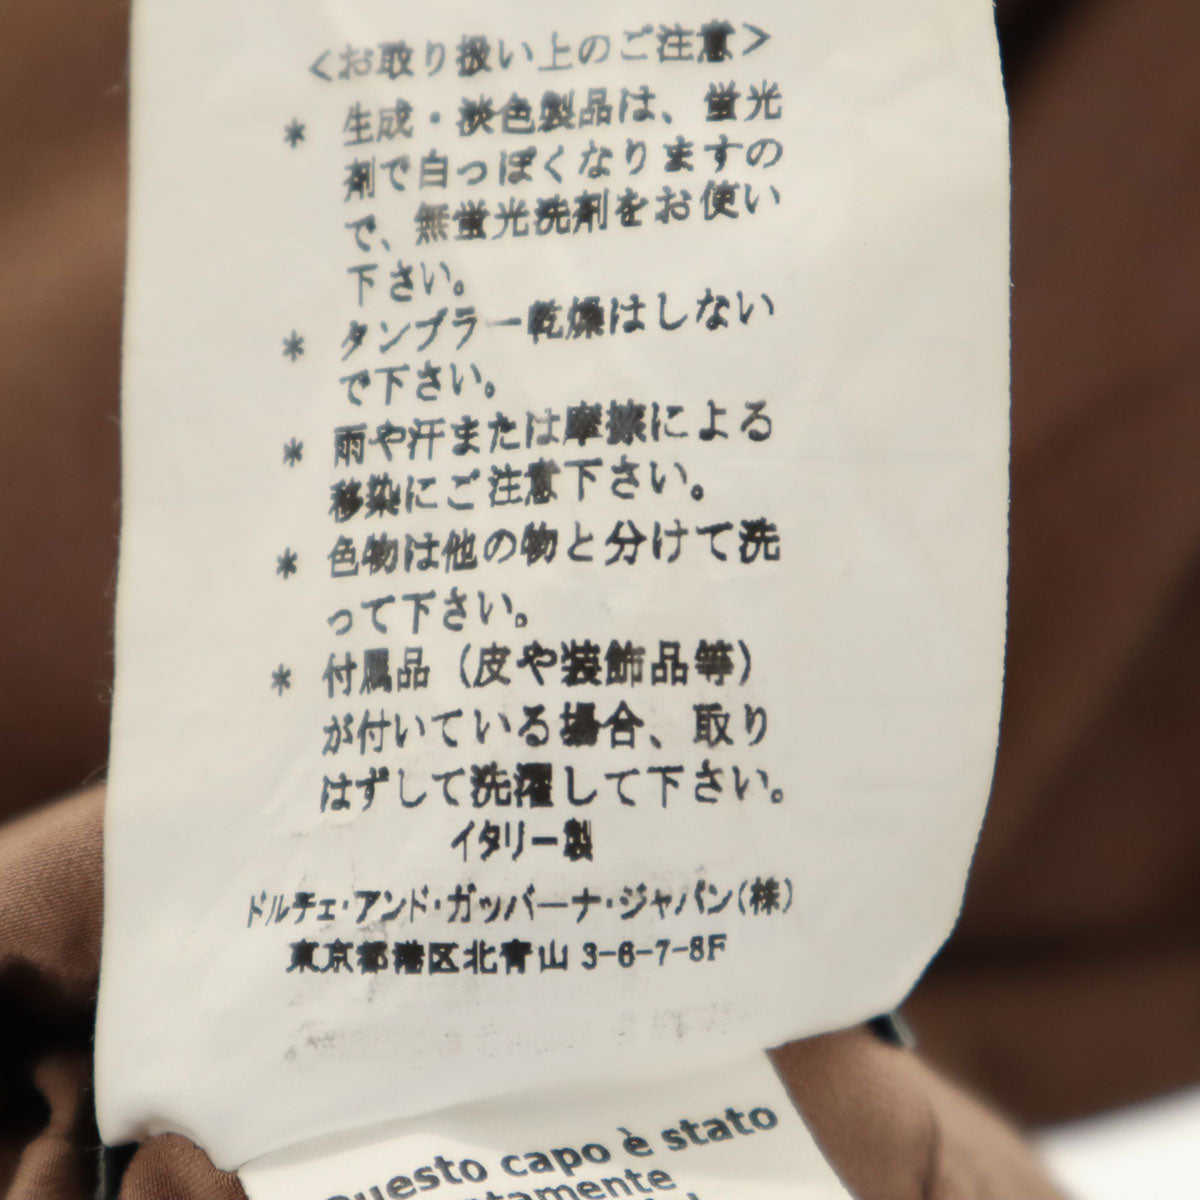 ＜お取り扱い上のご注意＞
＊ 生成・淡色製品は、蛍光
剤で白っぽくなりますの
で、無蛍光洗剤をお使い
下さい。
＊ タンブラー乾燥はしない
で下さい。
＊ 雨や汗または摩擦による
移染にご注意下さい。
＊ 色物は他の物と分けて洗
って下さい。
＊ 付属品（皮や装飾品等）
が付いている場合、取り
はずして洗濯して下さい。
イタリー製
ドルチェ・アンド・ガッバーナ・ジャパン（株）
東京都港区北青山 3-6-7-8F
Questo capo è stato